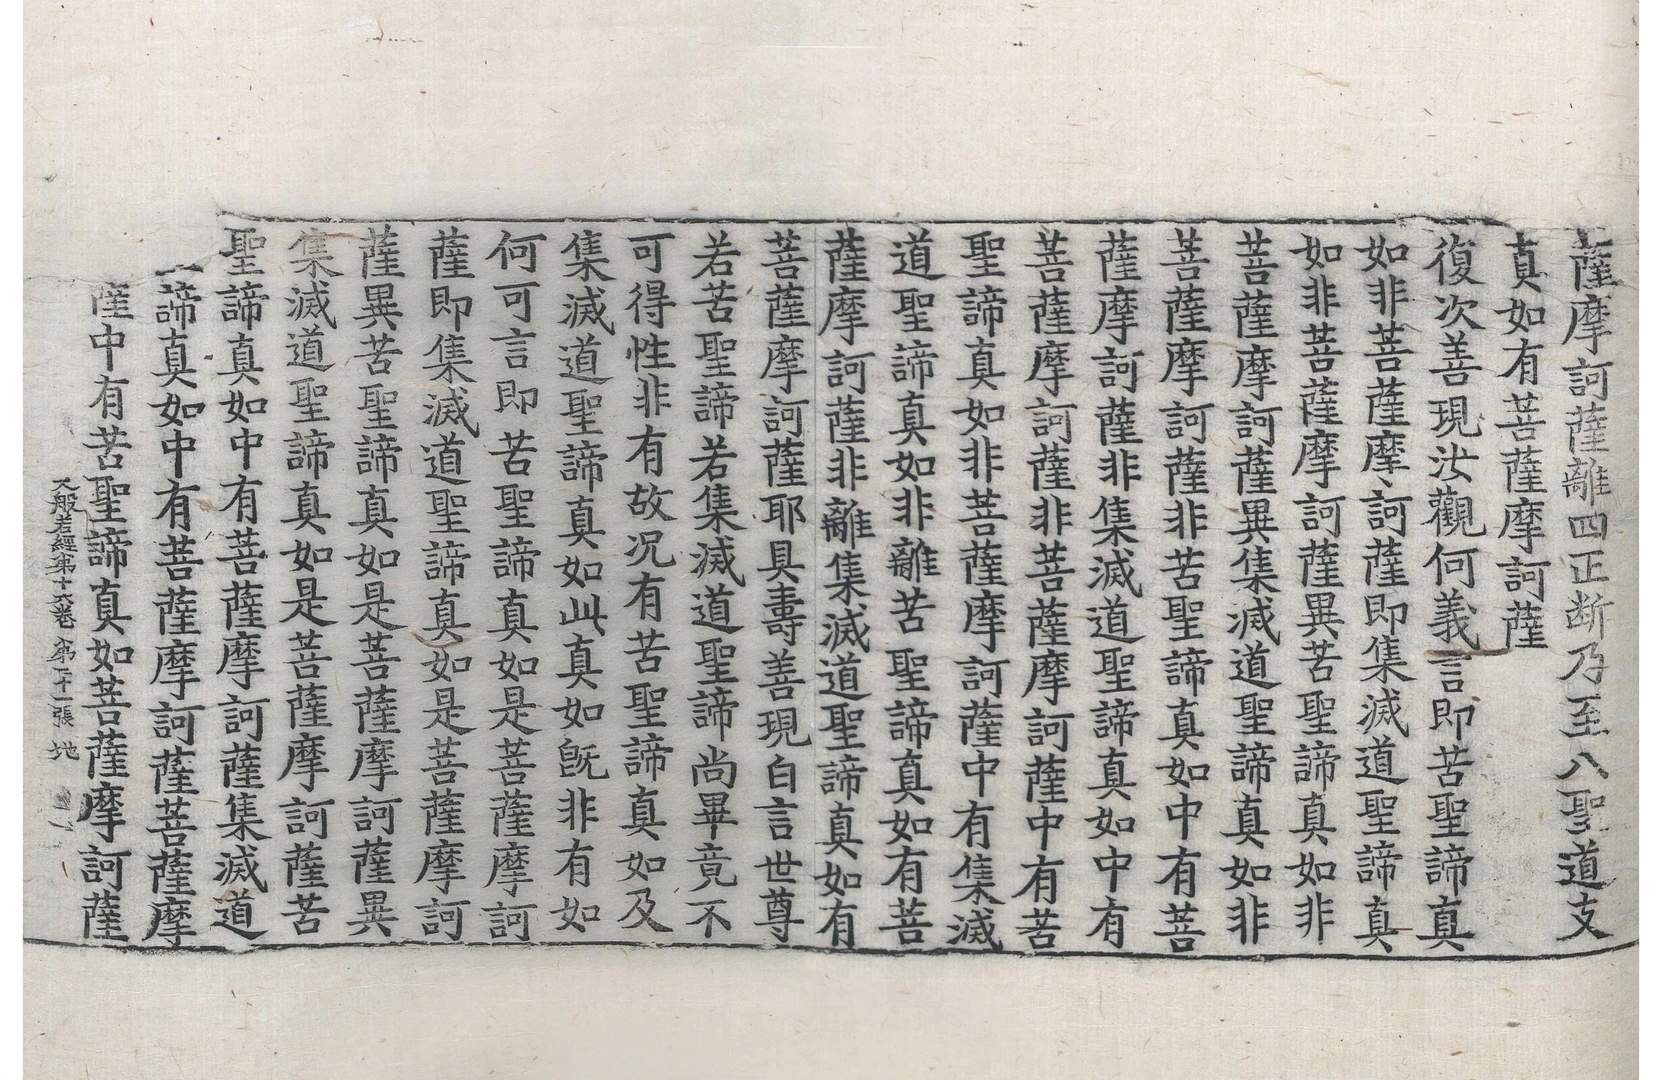 薩摩訶薩離四正断乃至八聖道支
真如有菩薩摩訶薩
復次善現汝觀何義言即苦聖諦真
如非菩薩摩訶薩即集滅道聖諦真
如非菩薩摩訶薩異苦聖諦真如非
菩薩摩訶薩異集滅道聖諦真如非
菩薩摩訶薩非苦聖諦真如中有菩
薩摩訶薩非集滅道聖諦真如中有
菩薩摩訶薩非菩薩摩訶薩中有苦
聖諦真如非菩薩摩訶薩中有集滅
道聖諦真如非離苦聖諦真如有菩
薩摩訶薩非離集滅道聖諦真如有
菩薩摩訶薩耶具壽善現白言世尊
若苦聖諦若集滅道聖諦尚畢竟不
可得性非有故况有苦聖諦真如及
集滅道聖諦真如此真如旣非有如
何可言即苦聖諦真如是菩薩摩訶
薩即集滅道聖諦真如是菩薩摩訶
薩異苦聖諦真如是菩薩摩訶薩異
集滅道聖諦真如是菩薩摩訶薩苦
聖諦真如中有菩薩摩訶薩集滅道
諦真如中有菩薩摩訶薩菩薩摩
薩中有苦聖諦真如菩薩摩訶薩
大般若經第十六卷 第二十一張 地